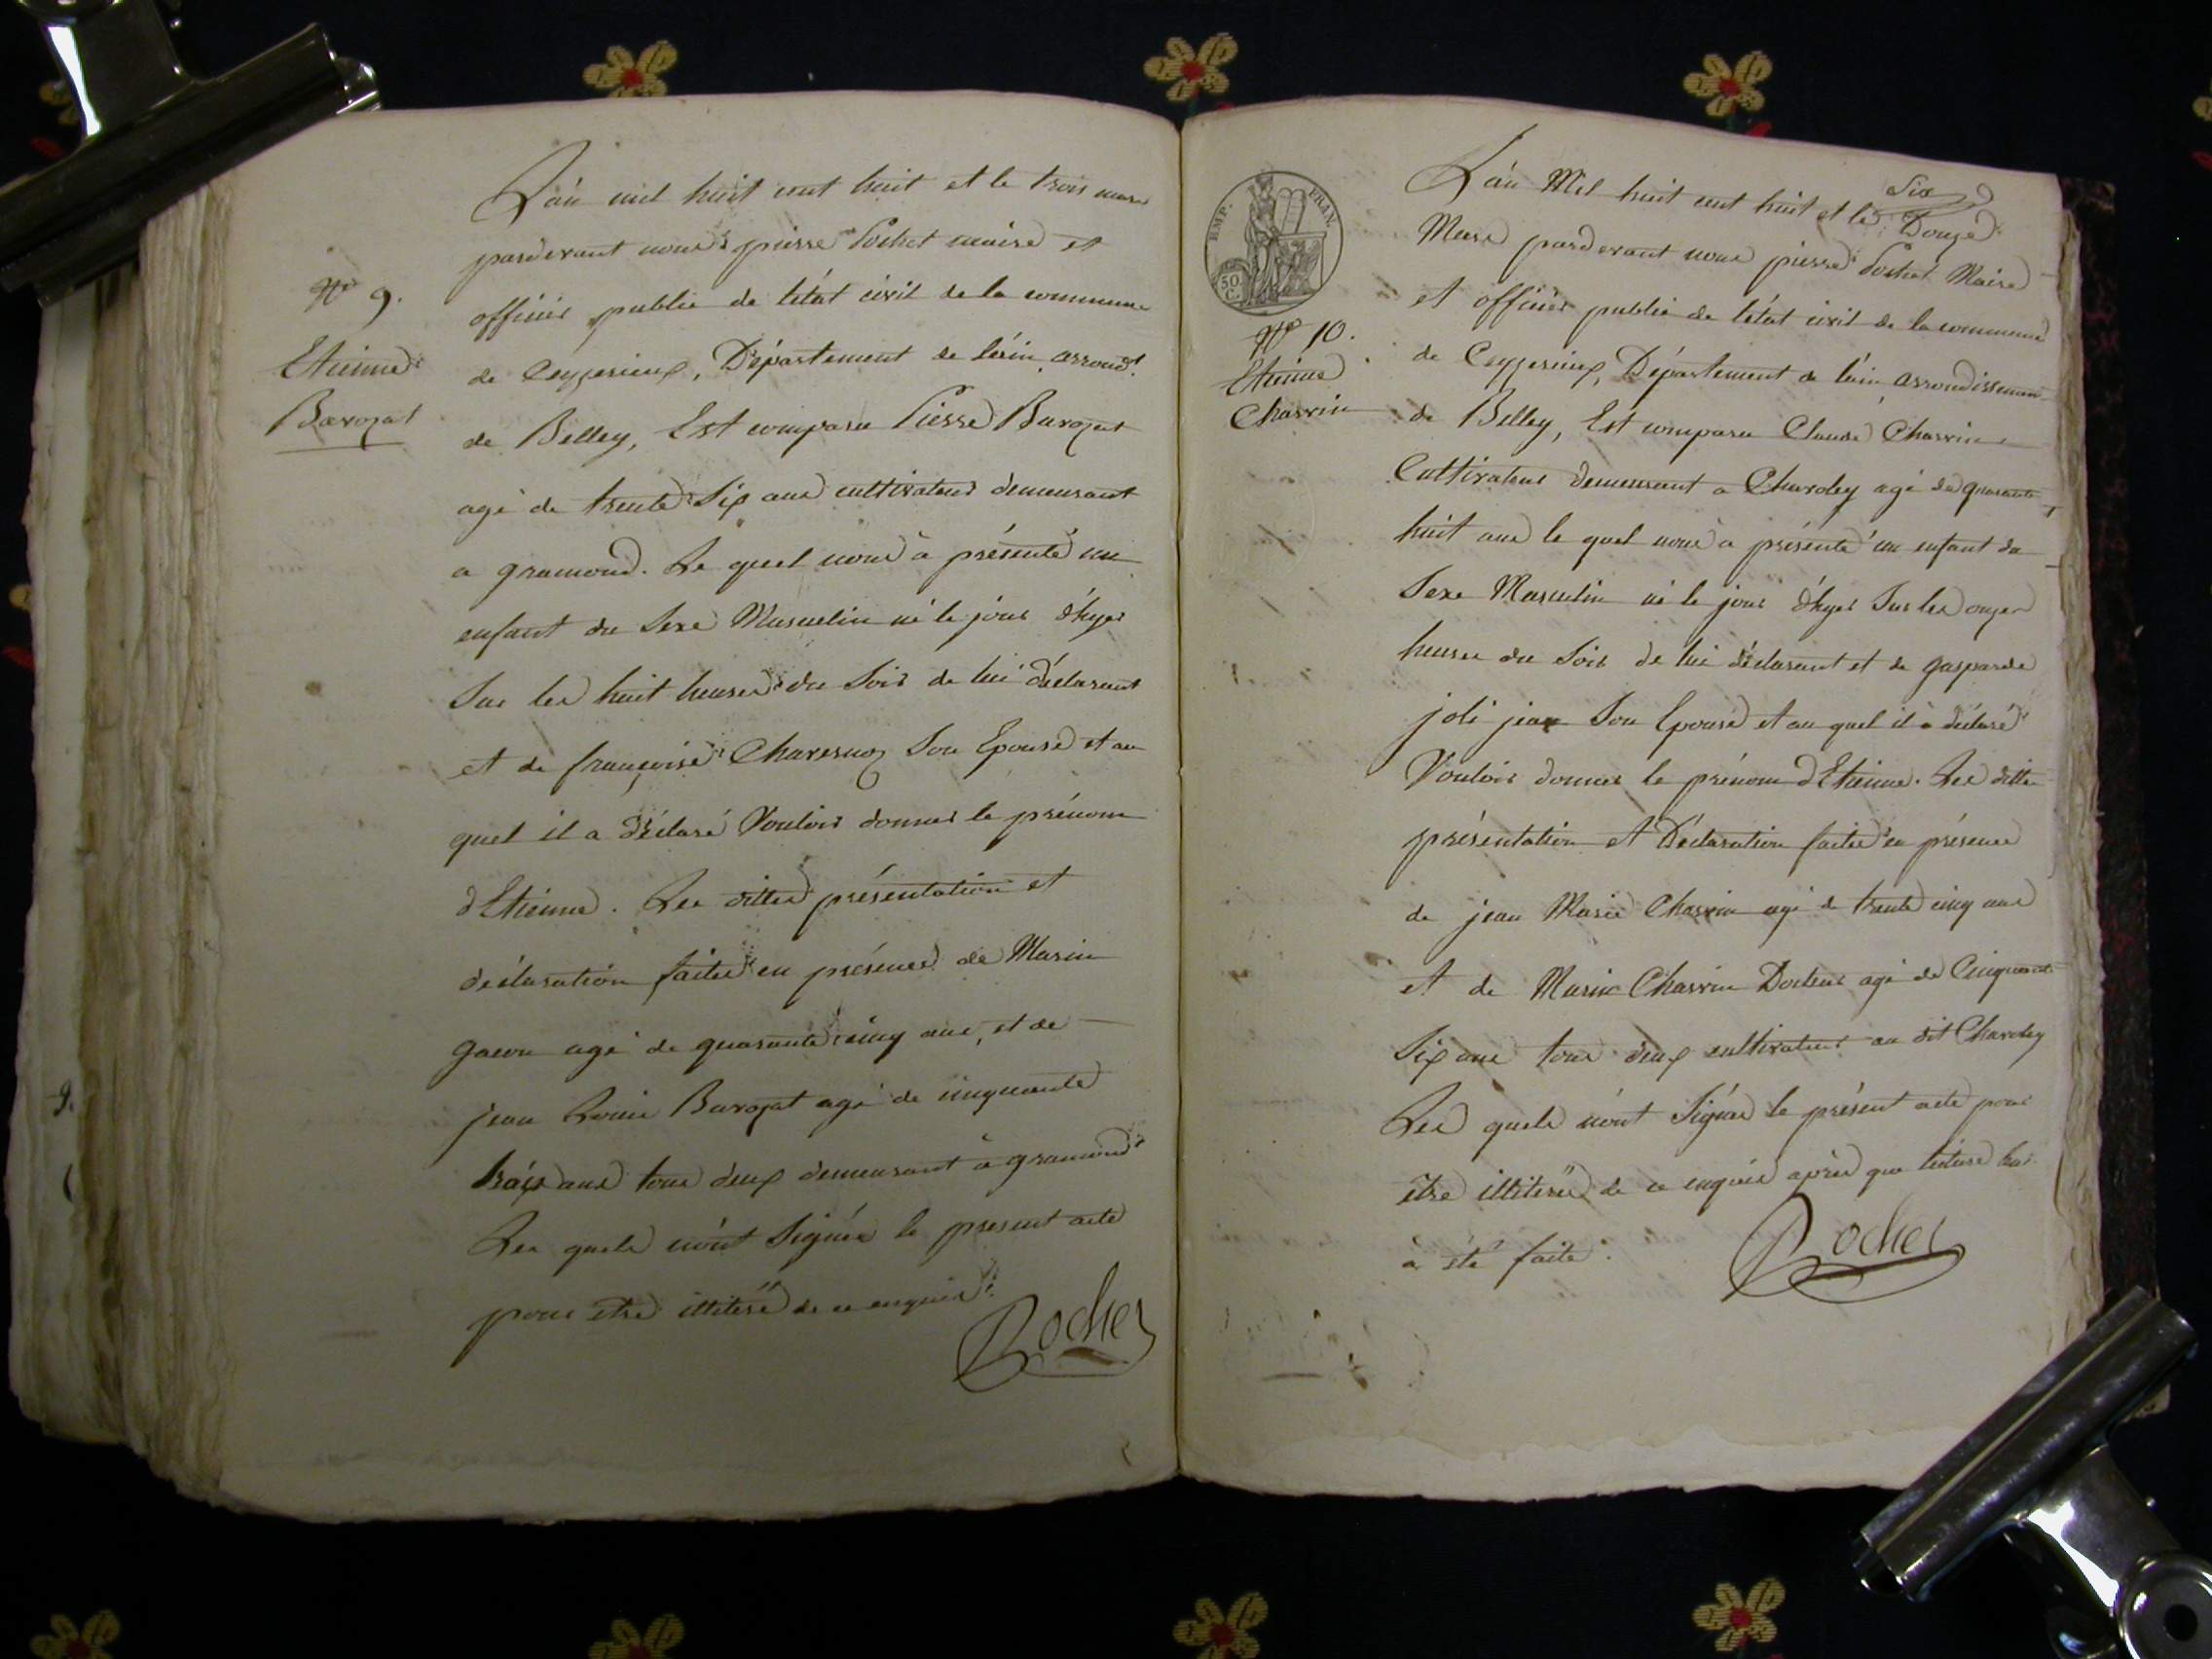 N° 9.
Etienne
Barozat
L'an mil huit cent huit et le trois mars
pardevant nous pierre Rochet maire et
officier public de l'état civil de la commune
de Ceyzerieux, Département de l'ain, arrondt.
de Belley, Est comparu Pierre Barozat
agé de trente Six ans cultivateur demeurant
a gramond. Le quel nous à présenté un
enfant du Sexe Masculin né le jour d'hyer
Sur les huit heures du Soir de lui déclarant
et de françoise Charvesnoz Son Epouse et au
quel il a déclaré Vouloir donner le prénom
d'Etienne. Les dittes présentation et
déclaration faites en présence de Marin
gacon agé de quarante cinq ans, et de
jean Louis Barozat agé de cinquante
trois ans tous deux demeurant à gramond
Les quels n'ont Signés le present acte
pour etre illiterés de ce enquis.
Rochet
EMP. FRAN.
50 C.
N° 10.
Etienne
Charrin
L'an Mil huit cent huit et le Douze Six
Mars pardevant nous pierre Rochet Maire
et officier public de l'état civil de la commune
de Ceyzerieux, Département de l'ain, arrondissement
de Belley, Est comparu Claude Charrin
Cultivateur demeurant a Charoley agé de quarante
huit ans le quel nous a présenté un enfant du
Sexe Masculin né le jour d'hyer Sur les onze
heures du Soir de lui déclarant et de gasparde
joli jean Son Epouse et au quel il à déclaré
Vouloir donner le prénom d'Etienne. Les dittes
présentation et Déclaration faites en présence
de jean Marie Charrin agé de trente cinq ans
et de Marin Charrin Docteur agé de Cinquante
Six ans tous deux cultivateurs au dit Charoley
Les quels n'ont Signés le présent acte pour
etre illiterés de ce enquis après que lecture
à été faite.
Rochet